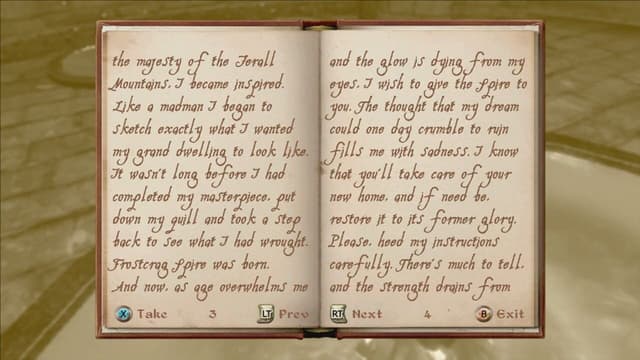 the majesty of the Jerall
Mountains, I became inspired.
Like a madman I began to
sketch exactly what I wanted
my grand dwelling to look like.
It wasn't long before I had
completed my masterpiece, put
down my quill and took a step
back to see what I had wrought.
Frostcrag Spire was born.
And now, as age overwhelms me
X Take 3 LT Prev
and the glow is dying from my
eyes, I wish to give the Spire to
you. The thought that my dream
could one day crumble to ruin
fills me with sadness. I know
that you'll take care of your
new home, and if need be,
restore it to its former glory.
Please, heed my instructions
carefully. There's much to tell,
and the strength drains from
RT Next 4 B Exit